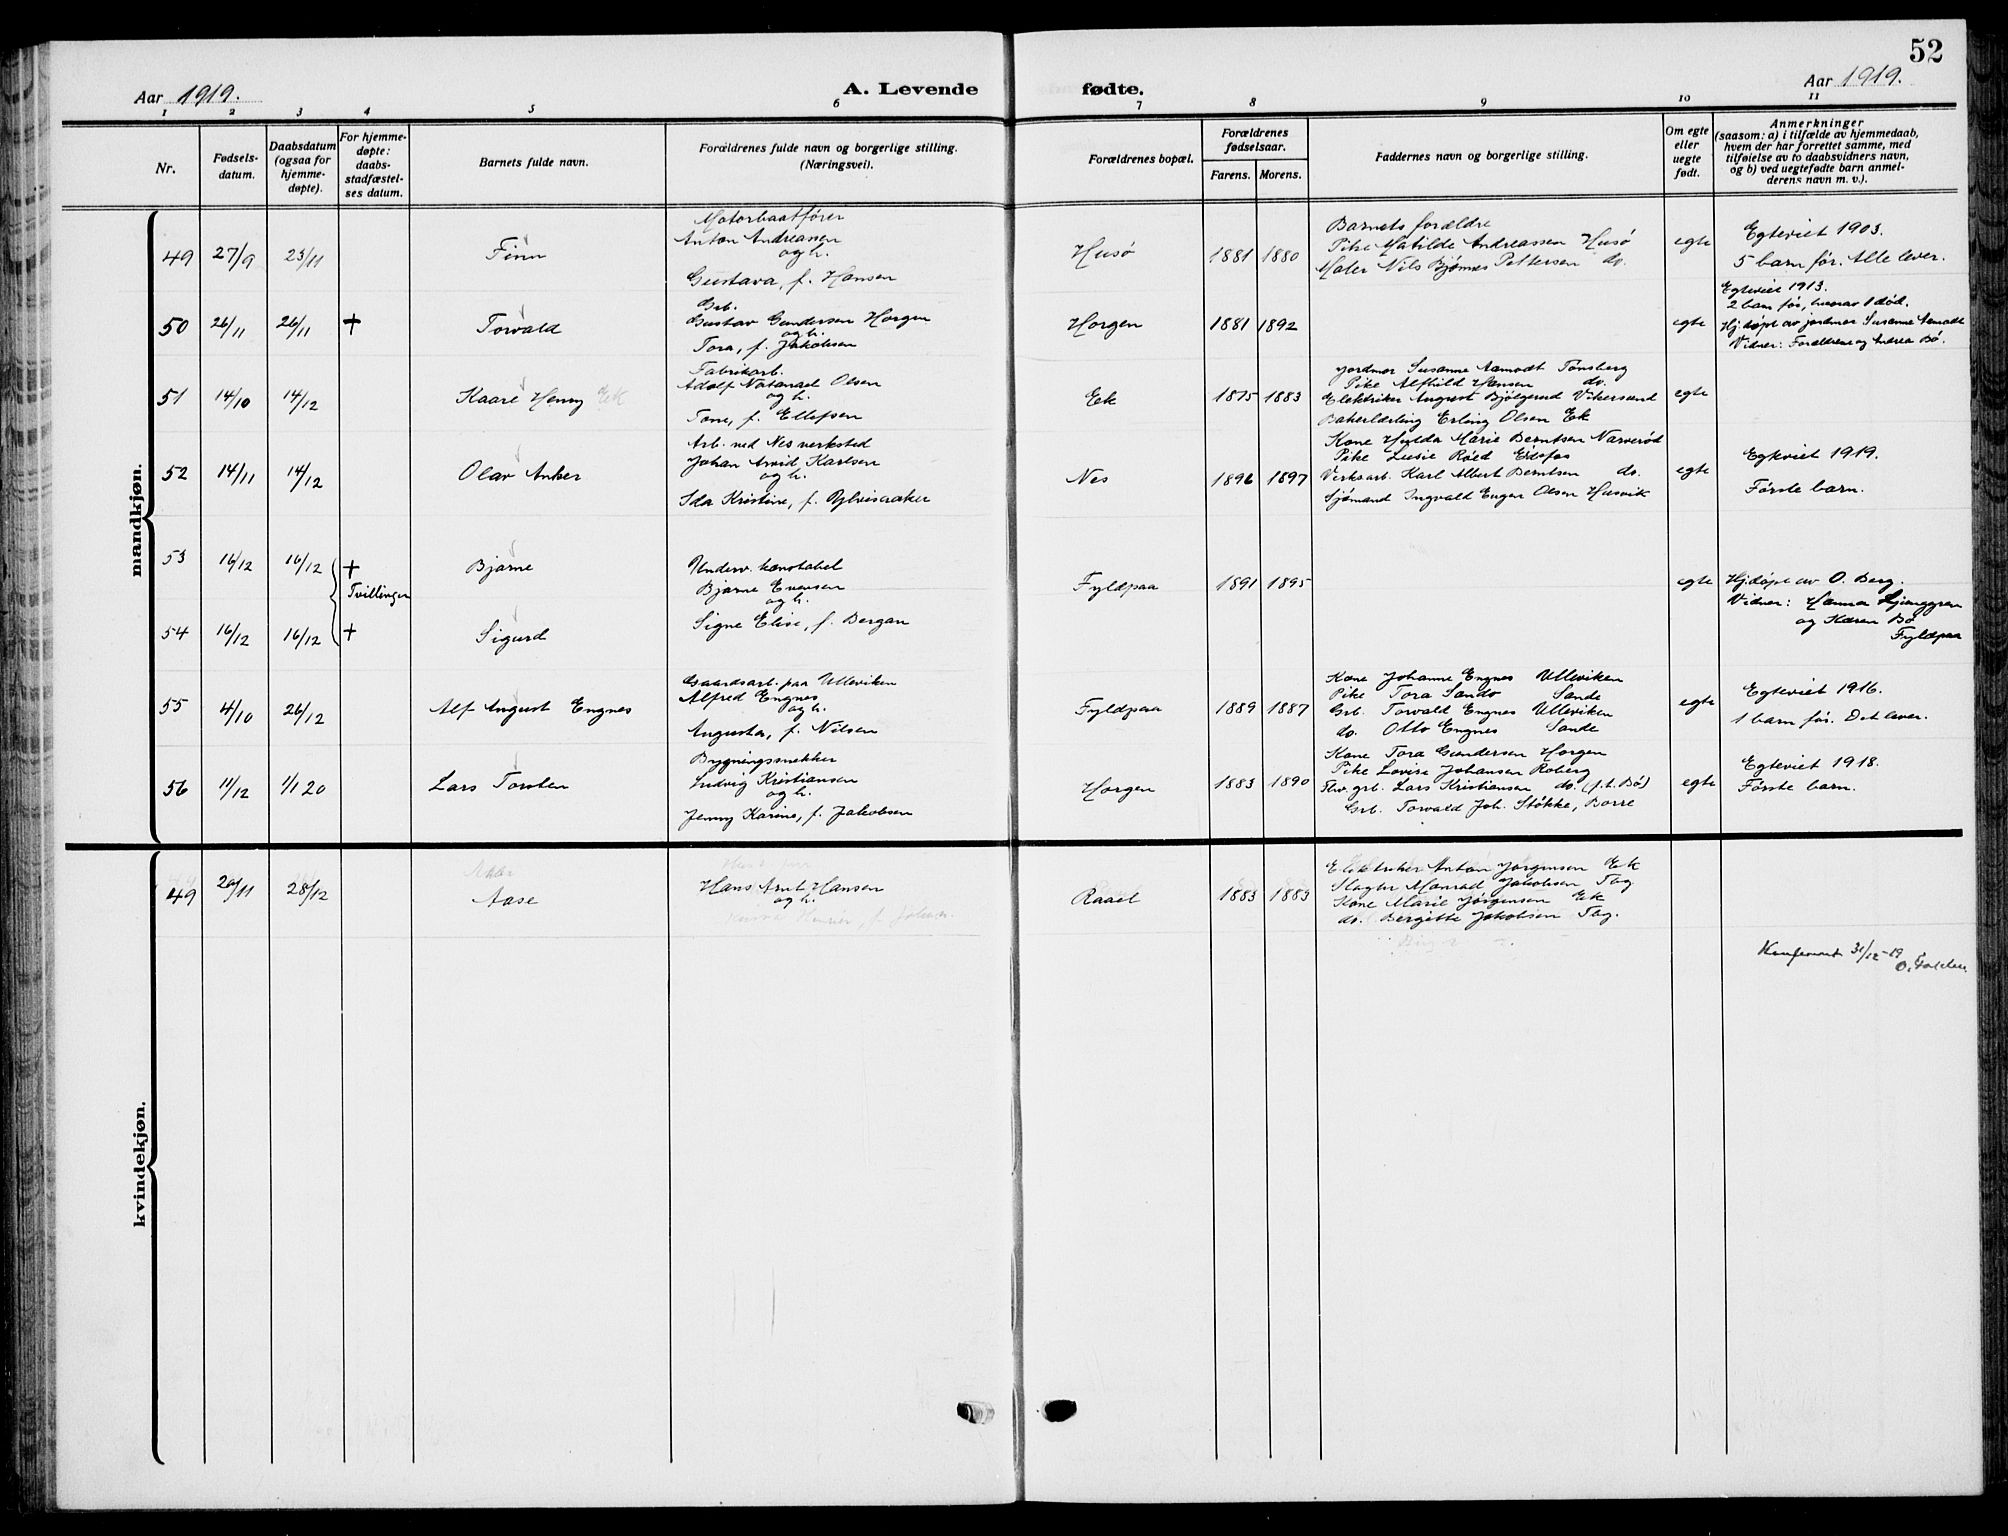 52
Aar 1919.
A. Levende
fødte.
Aar 1919.
1 2 3 4 5 6 7 8 9 10 11
Nr.
Fødsels-
datum.
Daabsdatum
(ogsaa for
hjemme-
døpte).
For hjemme-
døpte:
daabs-
stadfæstel-
ses datum.
Barnets fulde navn.
Forældrenes fulde navn og borgerlige stilling.
(Næringsvei).
Forældrenes bopæl.
Forældrenes
fødselsaar.
Farens. Morens.
Faddernes navn og borgerlige stilling.
Om egte
eller
uegte
født.
Anmerkninger
(saasom: a) i tilfælde av hjemmedaab,
hvem der har forrettet samme, med
tilføielse av to daabsvidners navn,
og b) ved uegtefødte barn anmel-
derens navn m. v.).
mandkjøn.
49 27/9 23/11 Finn
Motorbaatfører
Anton Andreassen
og h.
Gustava, f. Hansen
Husø 1881 1880
Barnets forældre
Pike Matilde Andreassen Husø
Maler Nils Bjømes Pettersen do.
egte
Egteviet 1903.
5 barn før. Alle lever.
50 26/11 26/11 + Torvald
Grb.
Gustav Gundersen Horgen
og h.
Tora, f. Jakobsen
Horgen 1881 1892
egte
Egteviet 1913.
2 barn før, hvorav 1 død.
Hj. døpt av jordmor Susanne Aamodt
Vidner: Forældrene og Andrea Bø.
51 14/10 14/12 Kaare Henry Eek
Fabrikarb.
Adolf Natanael Olsen
og h.
Tone, f. Ellefsen
Eek 1875 1883
Jordmor Susanne Aamodt Tønsberg
Pike Alfhild Hansen do.
Elektriker August Bjølgerud Vikersund
Bakerlærling Erling Olsen Ek
egte
52 14/11 14/12 Olav Anker
Arb. ved Nes verksted
Johan Arvid Karlsen
og h.
Ida Kristine, f. Ylvisaaker
Nes 1896 1897
Kone Hulda Marie Berntsen Narverød
Pike Lusie Røed Eidsfos
Verksarb. Karl Albert Berntsen do.
Sjømand Ingvald Eugen Olsen Husvik
egte
Egteviet 1919.
Første barn.
53 16/12 16/12 + Bjarne
Tvillinger
Underv. konstabel
Bjarne Evensen
og h.
Signe Elise, f. Bergan
Fyldpaa 1891 1895
egte
Hj. døpt av O. Berg.
Vidner: Hanna
og Karen Bø
Fyldpaa
54 16/12 16/12 + Sigurd
55 4/10 26/12 Alf August Engnes
Gaardsarb. paa Ulleviken
Alfred Engnes
og h.
Augusta, f. Nilsen
Fyldpaa 1889 1887
Kone Johanne Engnes Ulleviken
Pike Tora Sando Sande
Grb. Torvald Engnes Ulleviken
do. Otto Engnes Sande
egte
Egteviet 1916.
1 barn før. Det lever.
56 11/12 1/1 20 Lars Torsten
Bygningssnekker
Ludvig Kristiansen
og h.
Jenny Karine, f. Jakobsen
Horgen 1883 1890
Kone Tora Gundersen Horgen
Pike Lovise Johansen Roberg
Fhv. grb. Lars Kristiansen do. (f. t. Bø)
Grb. Torvald Joh. Støkke, Borre
egte
Egteviet 1918.
Første barn.
kvindekjøn.
49 20/11 28/12 Aase
Hans Arnt Hansen
og h.
Raael 1883 1883
Elektriker Anton Jørgensen Ek
Slagter Monrad Jakobsen Tbg.
Kone Marie Jørgensen Ek
do. Bergitte Jakobsen Tbg.
Konfereret 31/12-19